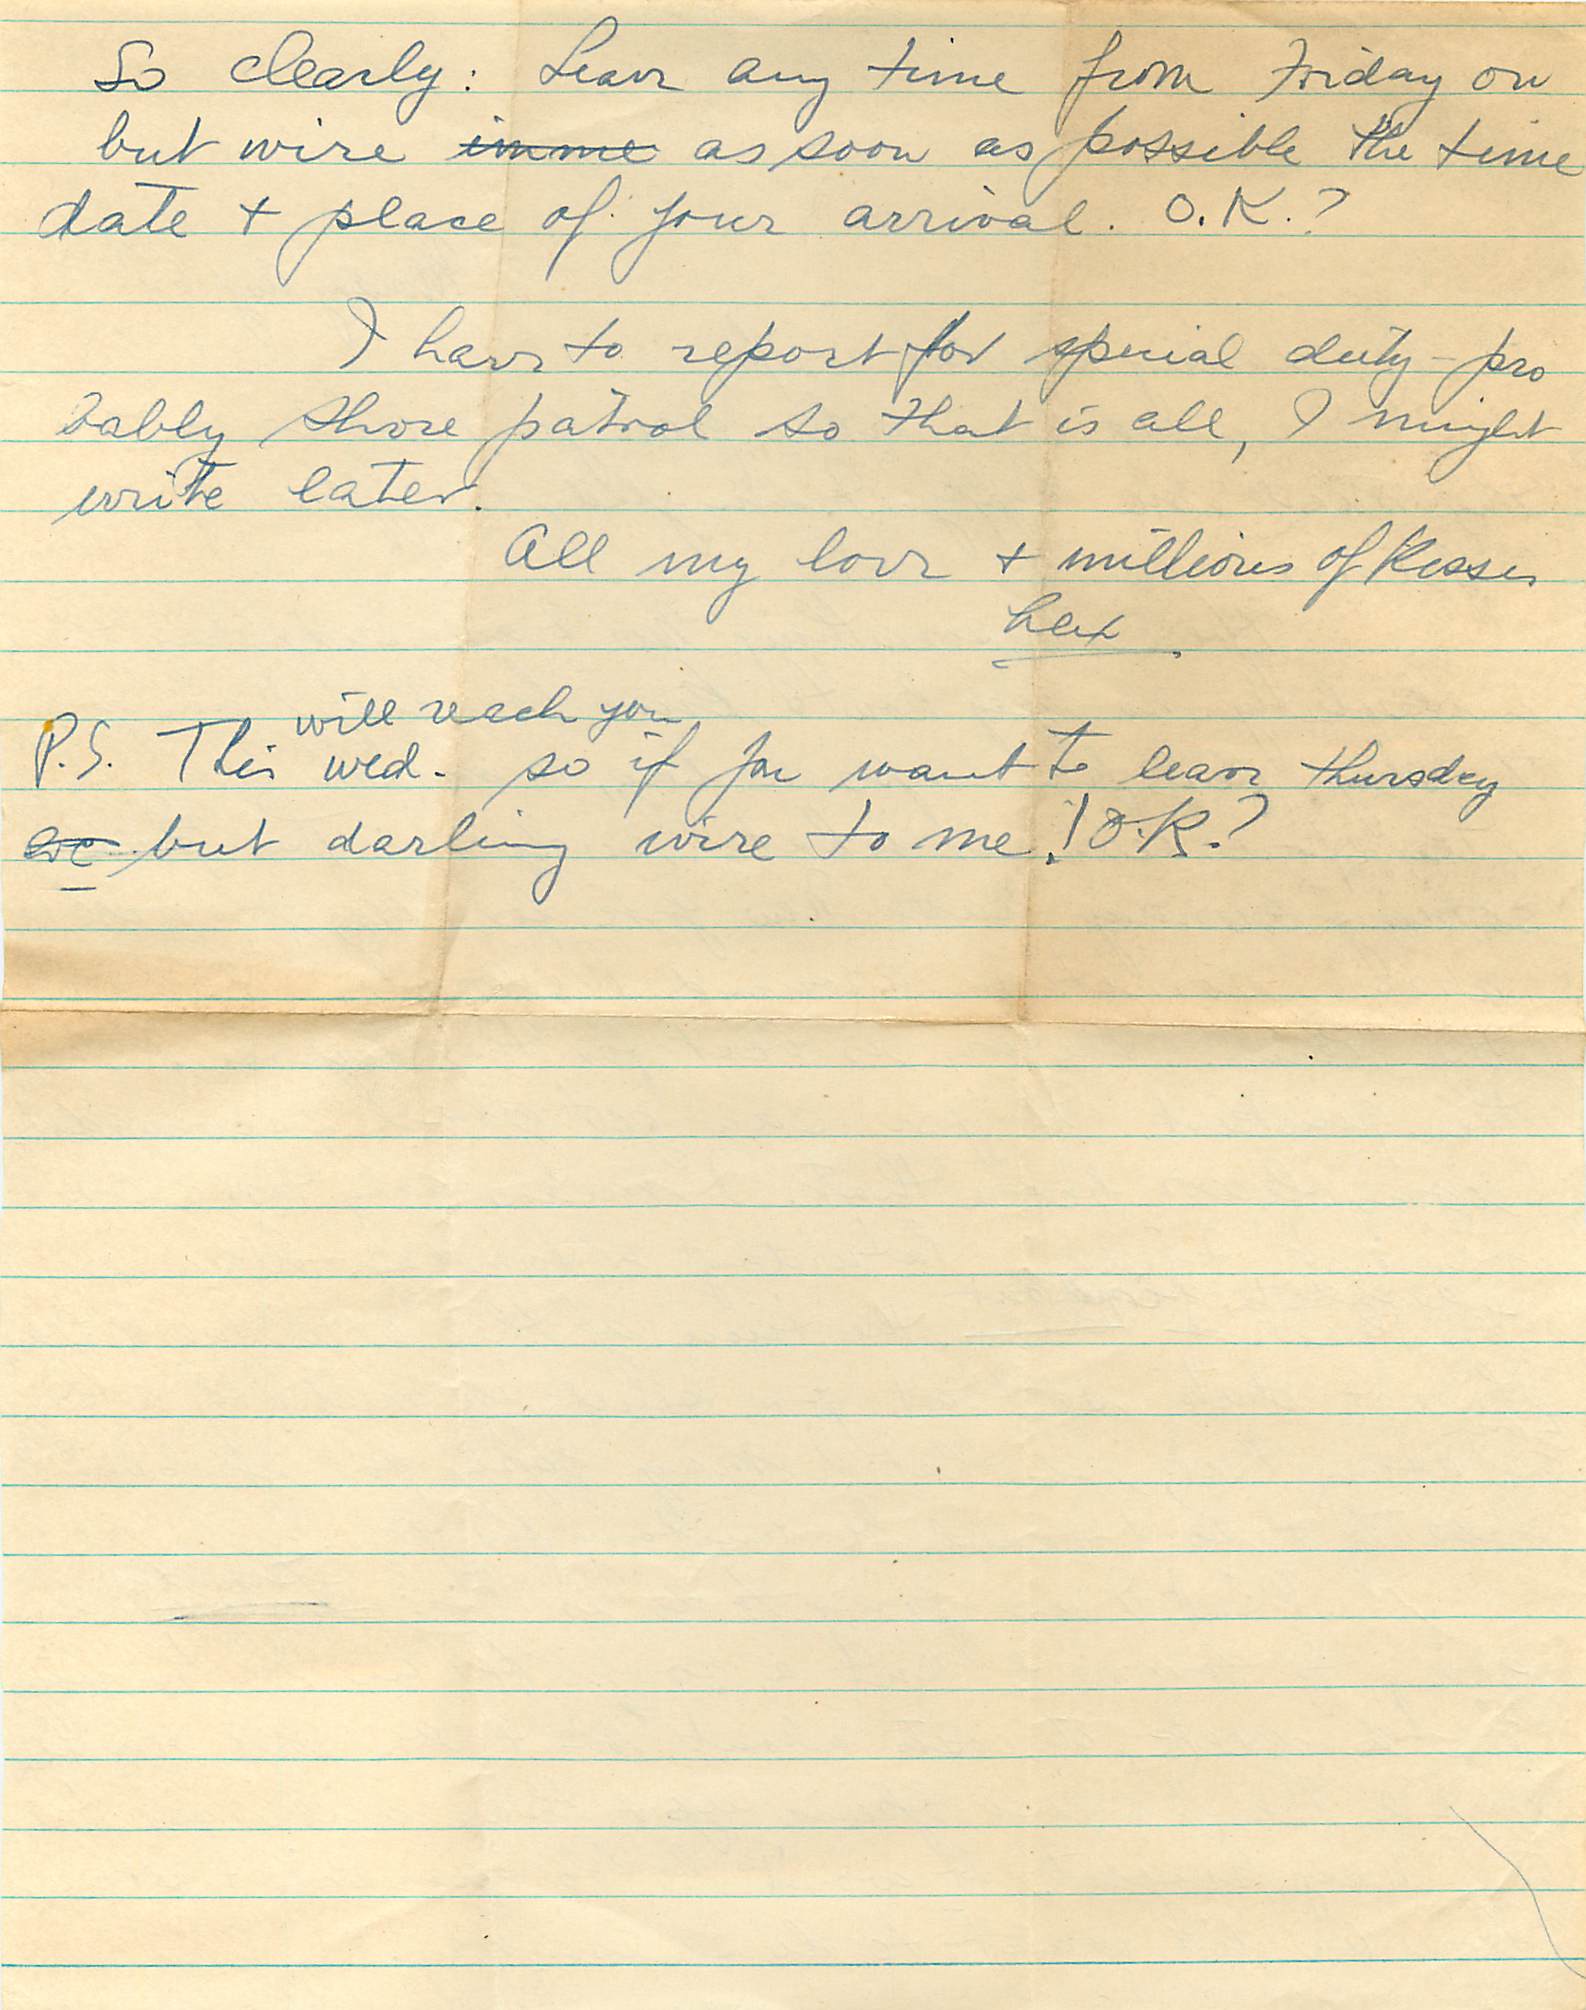 So clearly: Leave any time from Friday on
but wire imme as soon as possible the time
date + place of your arrival. O.K.?
I have to report for special duty - pro
bably shore patrol so that is all, I might
write later.
All my love + millions of kisses
will reach you
P.S. This wed. so if you want to leave thursday
but darling wire to me! O.K.?